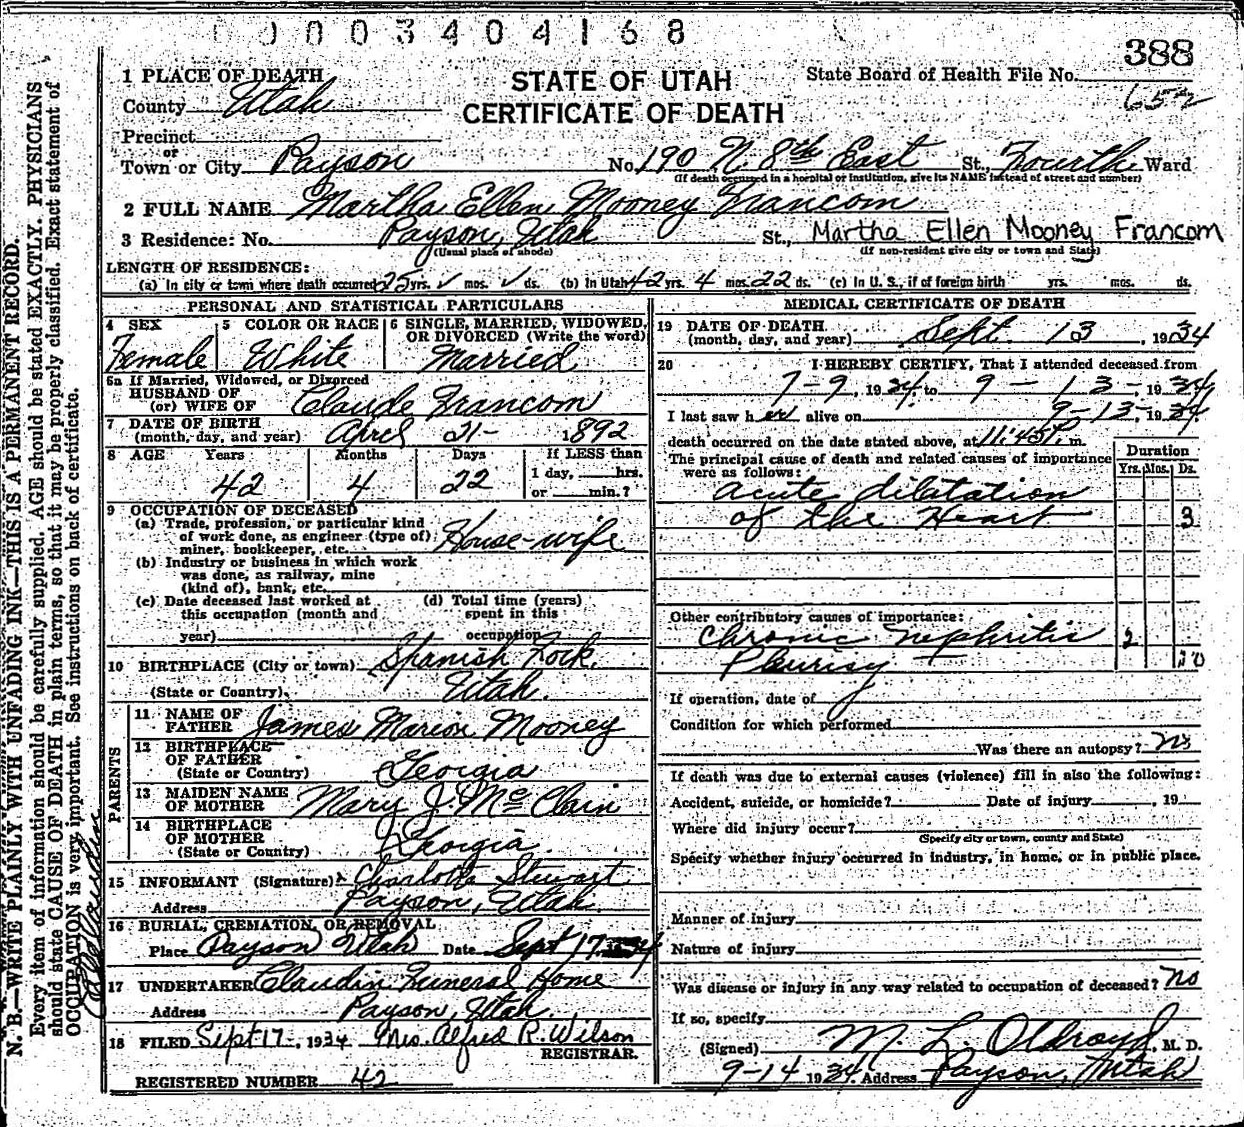 0003404168
388
1 PLACE OF DEATH
STATE OF UTAH
State Board of Health File No.
County Utah
CERTIFICATE OF DEATH
652
Precinct
or
Town or City Payson No. 190 N. 8th East St., Fourth Ward
(If death occurred in a hospital or institution, give its NAME instead of street and number)
2 FULL NAME Martha Ellen Mooney Francom
3 Residence: No. Payson, Utah St., Martha Ellen Mooney Francom
(Usual place of abode) (If non-resident give city or town and State)
LENGTH OF RESIDENCE:
(a) In city or town where death occurred 25 yrs. mos. ds. (b) In Utah 42 yrs. 4 mos. 22 ds. (c) In U. S., if of foreign birth yrs. mos. ds.
PERSONAL AND STATISTICAL PARTICULARS
4 SEX 5 COLOR OR RACE 6 SINGLE, MARRIED, WIDOWED, OR DIVORCED (Write the word)
Female White Married
6a If Married, Widowed, or Divorced
HUSBAND OF
(or) WIFE OF Claude Francom
7 DATE OF BIRTH
(month, day, and year) April 21- 1892
8 AGE Years Months Days If LESS than
1 day, hrs.
42 4 22 or min.?
9 OCCUPATION OF DECEASED
(a) Trade, profession, or particular kind
of work done, as engineer (type of) House-wife
miner, bookkeeper, etc.
(b) Industry or business in which work
was done, as railway, mine
(kind of), bank, etc.
(c) Date deceased last worked at (d) Total time (years)
this occupation (month and spent in this
year) occupation
10 BIRTHPLACE (City or town) Spanish Fork,
(State or Country) Utah.
PARENTS
11 NAME OF
FATHER James Marion Mooney
12 BIRTHPLACE
OF FATHER
(State or Country) Georgia
13 MAIDEN NAME
OF MOTHER Mary J. McClain
14 BIRTHPLACE
OF MOTHER
(State or Country) Georgia.
15 INFORMANT (Signature) Charlotta Stewart
Address Payson, Utah
16 BURIAL, CREMATION, OR REMOVAL
Place Payson Utah Date Sept 17, 34
17 UNDERTAKER Claudin Funeral Home
Address Payson, Utah.
18 FILED Sept 17-, 1934 Mrs. Alfred R. Wilson
REGISTRAR.
REGISTERED NUMBER 42
MEDICAL CERTIFICATE OF DEATH
19 DATE OF DEATH
(month, day, and year) Sept. 13, 1934
20 I HEREBY CERTIFY, That I attended deceased from
7-9, 1934, to 9-13-, 1934,
I last saw her alive on 9-13-, 1934.
death occurred on the date stated above, at 11:45 P. m.
The principal cause of death and related causes of importance
were as follows:
Duration
Yrs. Mos. Ds.
Acute dilatation
of the Heart 3
Other contributory causes of importance:
Chronic Nephritis 2
Pleurisy 10
If operation, date of
Condition for which performed
Was there an autopsy? No
If death was due to external causes (violence) fill in also the following:
Accident, suicide, or homicide? Date of injury , 19
Where did injury occur?
(Specify city or town, county and State)
Specify whether injury occurred in industry, in home, or in public place.
Manner of injury
Nature of injury
Was disease or injury in any way related to occupation of deceased? No
If so, specify
(Signed) M. L. Oldroyd, M. D.
9-14 1934. Address Payson, Utah
N. B.—WRITE PLAINLY WITH UNFADING INK—THIS IS A PERMANENT RECORD.
Every item of information should be carefully supplied. AGE should be stated EXACTLY. PHYSICIANS
should state CAUSE OF DEATH in plain terms, so that it may be properly classified. Exact statement of
OCCUPATION is very important. See instructions on back of certificate.